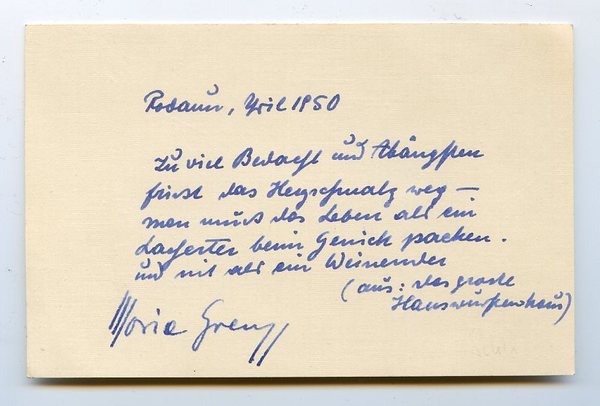 Rodaun, April 1950
Zu viel Bedacht und Abängsten
frisst das Herzschmalz weg —
man muss das Leben als ein
Lachender beim Genick packen.
und nit als ein Weinender
(aus: das grosse
Hanswurstenhaus)
Maria Grengg